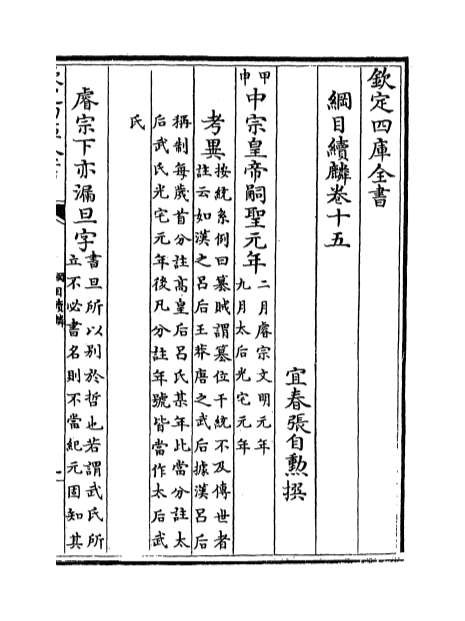 欽定四庫全書
綱目續麟卷十五
宜春張自勲撰
甲申
中宗皇帝嗣聖元年
二月睿宗文明元年
九月太后光宅元年
考異
按統系例曰簒賊謂簒位干統不及傳世者
註云如漢之呂后王莽唐之武后據漢呂后
稱制每歲首分註高皇后呂氏某年此當分註太
后武氏光宅元年後凡分註年號皆當作太后武
氏
睿宗下亦漏旦字
書旦所以别於哲也若謂武氏所
立不必書名則不當紀元固知其
綱目續麟
一